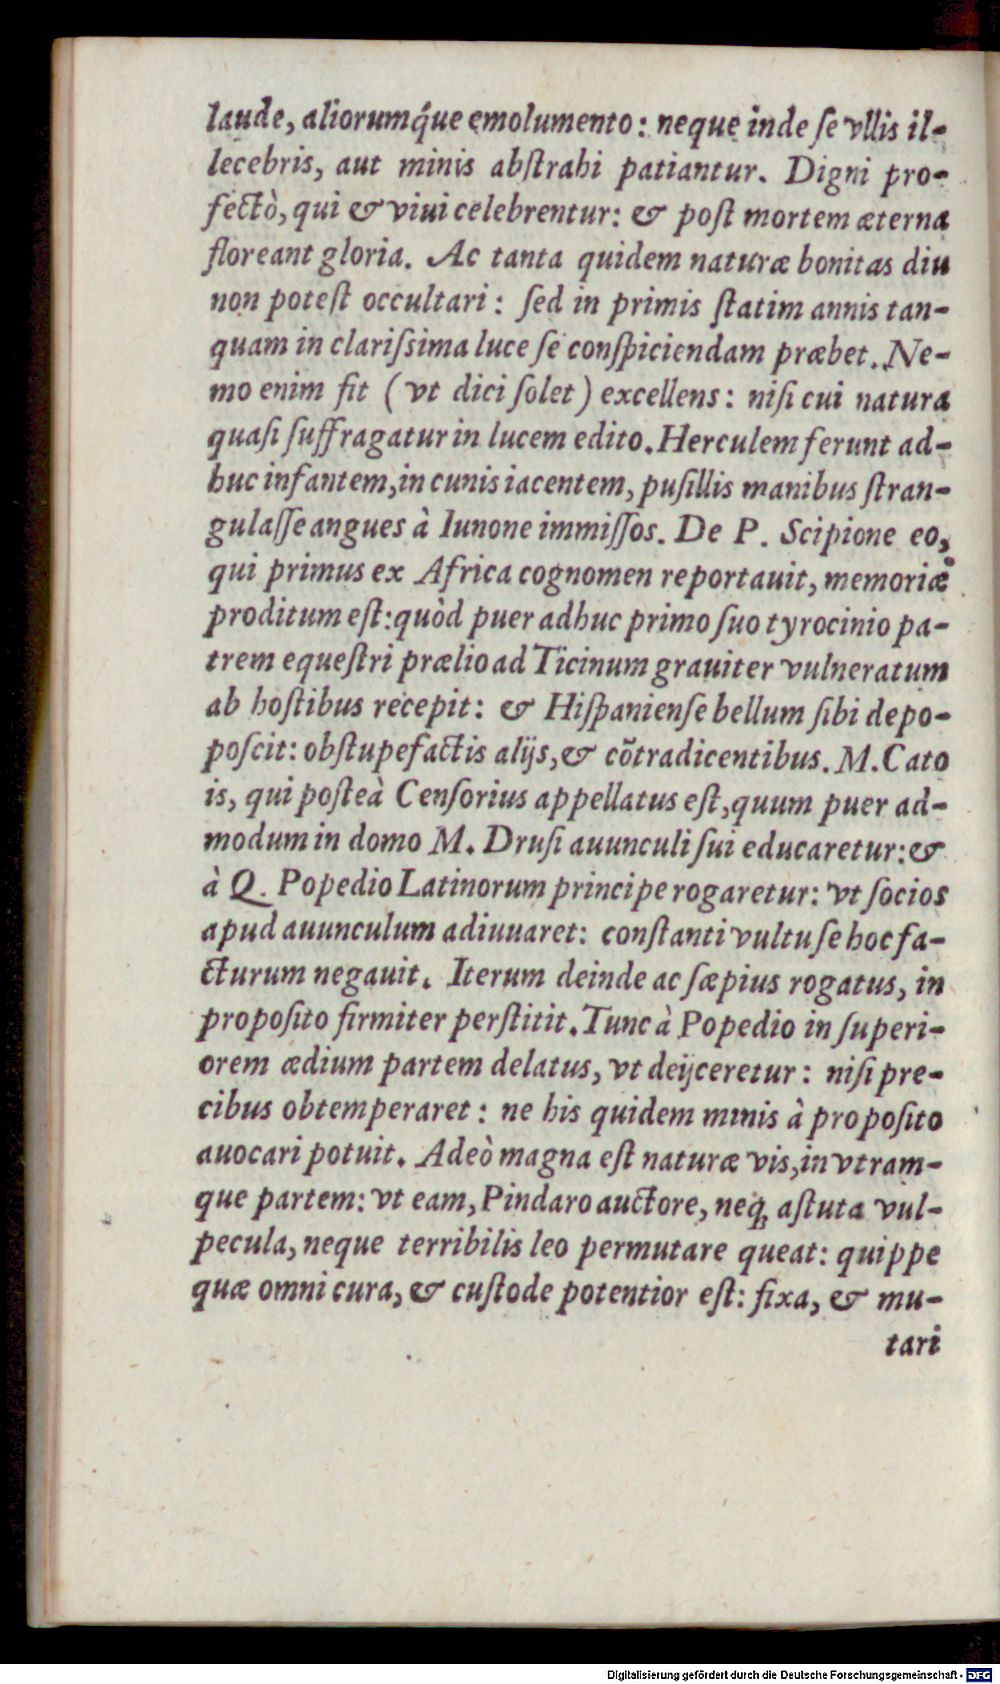 laude, aliorumq́ue emolumento: neque inde ſe vllis il-
lecebris, aut minis abſtrahi patiantur. Digni pro-
fectò, qui & viui celebrentur: & poſt mortem æterna
floreant gloria. Ac tanta quidem naturæ bonitas diu
non poteſt occultari: ſed in primis ſtatim annis tan-
quam in clariſsima luce ſe conſpiciendam præbet. Ne-
mo enim fit (vt dici ſolet) excellens: niſi cui natura
quaſi ſuffragatur in lucem edito. Herculem ferunt ad-
huc infantem, in cunis iacentem, puſillis manibus ſtran-
gulaſſe angues à Iunone immiſſos. De P. Scipione eo,
qui primus ex Africa cognomen reportauit, memoriæ
proditum eſt: quòd puer adhuc primo ſuo tyrocinio pa-
trem equeſtri prælio ad Ticinum grauiter vulneratum
ab hoſtibus recepit: & Hiſpanienſe bellum ſibi depo-
poſcit: obſtupefactis alijs, & cõtradicentibus. M. Cato
is, qui poſteà Cenſorius appellatus eſt, quum puer ad-
modum in domo M. Druſi auunculi ſui educaretur: &
à Q. Popedio Latinorum principe rogaretur: vt ſocios
apud auunculum adiuuaret: conſtanti vultu ſe hoc fa-
cturum negauit. Iterum deinde ac ſæpius rogatus, in
propoſito firmiter perſtitit. Tunc à Popedio in ſuperi-
orem ædium partem delatus, vt deijceretur: niſi pre-
cibus obtemperaret: ne his quidem minis à propoſito
auocari potuit. Adeò magna eſt naturæ vis, in vtram-
que partem: vt eam, Pindaro auctore, neq; aſtuta vul-
pecula, neque terribilis leo permutare queat: quippe
quæ omni cura, & cuſtode potentior eſt: fixa, & mu-
tari
Digitalisierung gefördert durch die Deutsche Forschungsgemeinschaft - DFG